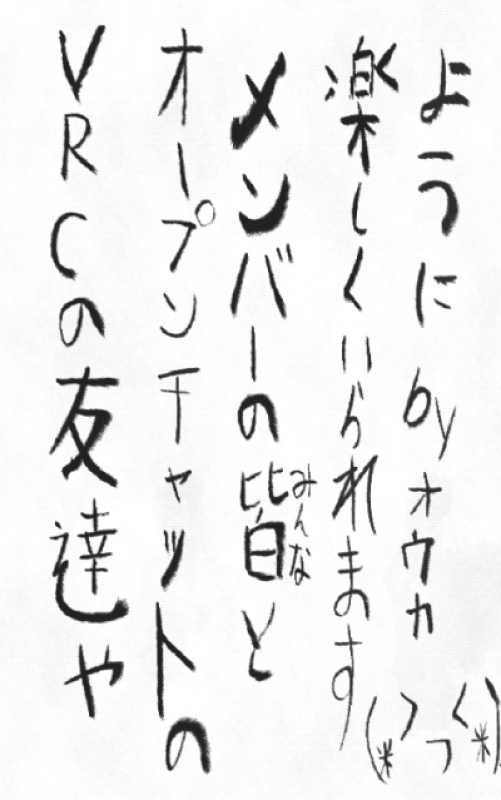 VRCの友達や
オープンチャットの
メンバーの皆と
みんな
楽しくいられます
ように byオウカ
(*>っ<*)